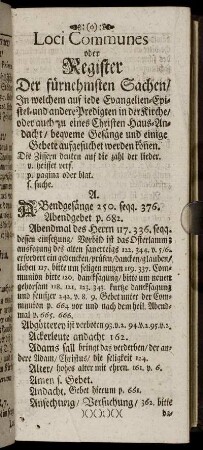 (o)
Loci Communes
oder
Register
Der fürnehmsten Sachen/
In welchem auf jede Evangelien-Epi-
stel-und andere-Predigten in der Kirche/
oder auch zu eines Christen Haus-An-
dacht/ bequeme Gesänge und einige
Gebete aufgesuchet werden können.
Die Ziffern deuten auf die zahl der lieder.
v. heisset vers.
p. pagina oder blat.
s. suche.
A.
Abendgesänge 250. seqq. 376.
Abendgebet p. 682.
Abendmal des Herrn 117. 336. seqq.
dessen einsetzung/
ansagung des alten sauerteigs 112. 344. v. 5. 6.
erfordert ein gedencken/ prüfen/ dancken/ glauben/
lieben 117. bitte um seligen nutzen 119. 337. Unter der
Communion bitte 120. dancksagung/ bitte um neuen
gehorsam 118. 121. 123. 343. kurtze dancksagung
und seuftzer 242. v. 8. 9. Gebet unter der Commu-
nion p. 664. vor und nach dem heil. Abend-
mal p. 665. 666.
Abgötterey ist verboten 93. v. 2. 94. v. 2. 95. v. 2.
Ackerleute andacht 162.
Adams fall bringt das verderben/ der an-
dere Adam/ Christus/ die seligkeit 124.
Alter/ hohes alter mit ehren. 161. v. 6.
Amen s. Gebet.
Andacht, Gebet hierum p. 661.
Anfechtung/ Versuchung/ 362. bitte
XXXXX
da/